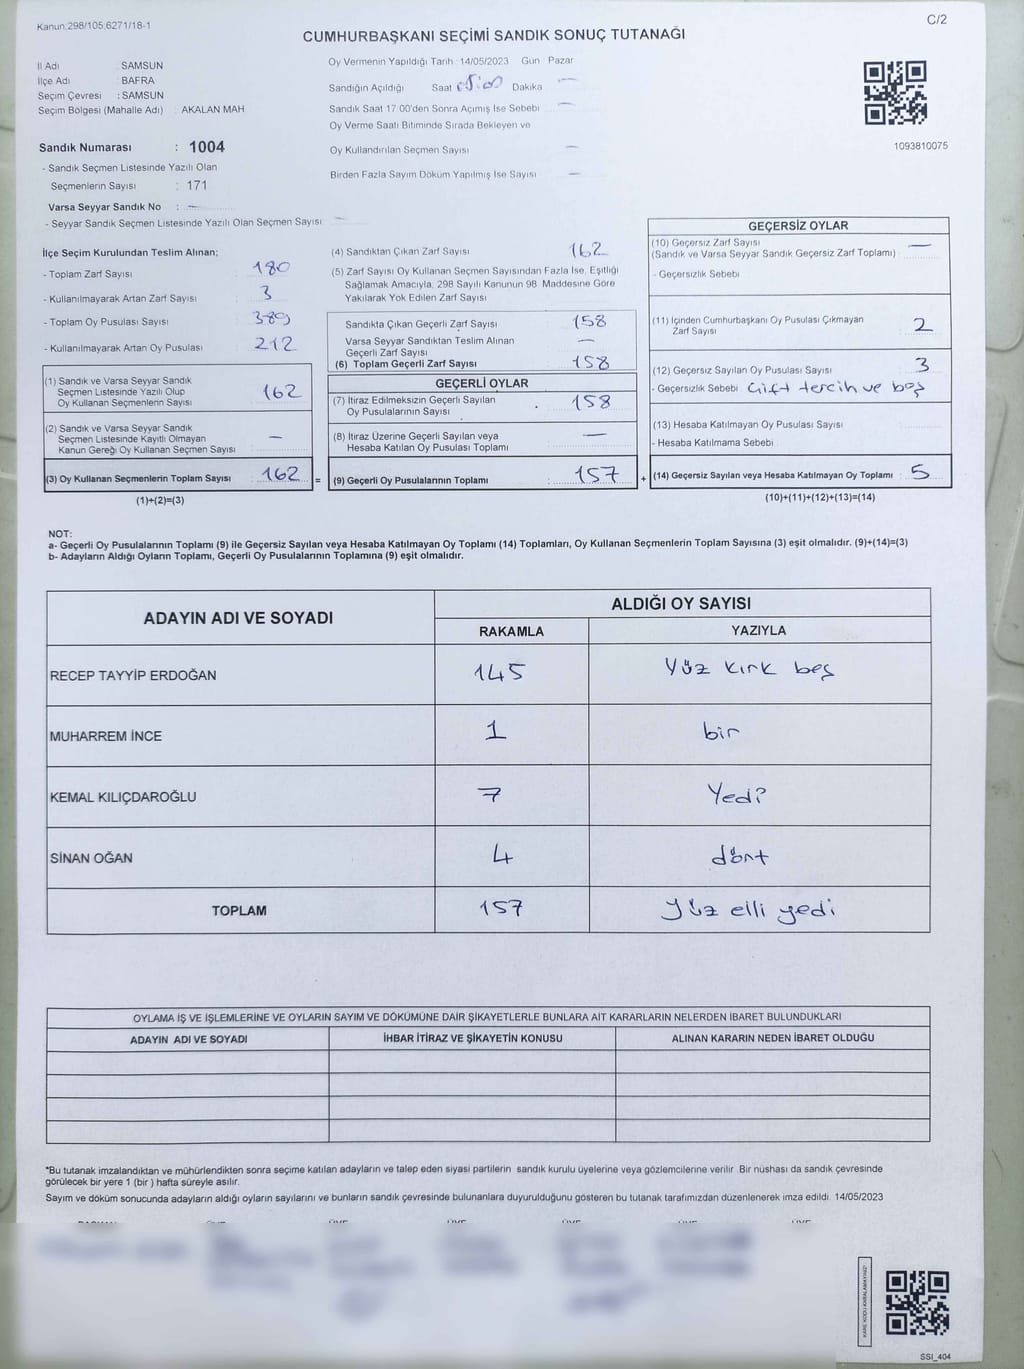 Kanun:298/105;6271/18-1
C/2
CUMHURBAŞKANI SEÇİMİ SANDIK SONUÇ TUTANAĞI
İl Adı : SAMSUN
İlçe Adı : BAFRA
Seçim Çevresi : SAMSUN
Seçim Bölgesi (Mahalle Adı) : AKALAN MAH
Sandık Numarası : 1004
- Sandık Seçmen Listesinde Yazılı Olan
Seçmenlerin Sayısı : 171
Varsa Seyyar Sandık No : —
- Seyyar Sandık Seçmen Listesinde Yazılı Olan Seçmen Sayısı: —
Oy Vermenin Yapıldığı Tarih :14/05/2023 Gün Pazar
Sandığın Açıldığı Saat Dakika —
Sandık Saat 17:00'den Sonra Açımış İse Sebebi —
Oy Verme Saati Bitiminde Sırada Bekleyen ve
Oy Kullandırılan Seçmen Sayısı —
Birden Fazla Sayım Döküm Yapılmış İse Sayısı —
1093810075
İlçe Seçim Kurulundan Teslim Alınan;
- Toplam Zarf Sayısı : 180
- Kullanılmayarak Artan Zarf Sayısı : 3
- Toplam Oy Pusulası Sayısı :
- Kullanılmayarak Artan Oy Pusulası : 212
(1) Sandık ve Varsa Seyyar Sandık
Seçmen Listesinde Yazılı Olup
Oy Kullanan Seçmenlerin Sayısı : 162
(2) Sandık ve Varsa Seyyar Sandık
Seçmen Listesinde Kayıtlı Olmayan
Kanun Gereği Oy Kullanan Seçmen Sayısı : —
(3) Oy Kullanan Seçmenlerin Toplam Sayısı : 162 =
(1)+(2)=(3)
(4) Sandıktan Çıkan Zarf Sayısı 162
(5) Zarf Sayısı Oy Kullanan Seçmen Sayısından Fazla İse, Eşitliği
Sağlamak Amacıyla, 298 Sayılı Kanunun 98. Maddesine Göre
Yakılarak Yok Edilen Zarf Sayısı
Sandıkta Çıkan Geçerli Zarf Sayısı 158
Varsa Seyyar Sandıktan Teslim Alınan
Geçerli Zarf Sayısı —
(6) Toplam Geçerli Zarf Sayısı 158
GEÇERLİ OYLAR
(7) İtiraz Edilmeksizin Geçerli Sayılan
Oy Pusulalarının Sayısı 158
(8) İtiraz Üzerine Geçerli Sayılan veya
Hesaba Katılan Oy Pusulası Toplamı —
(9) Geçerli Oy Pusulalarının Toplamı : 157 +
GEÇERSİZ OYLAR
(10) Geçersiz Zarf Sayısı —
(Sandık ve Varsa Seyyar Sandık Geçersiz Zarf Toplamı) :
- Geçersizlik Sebebi
(11) İçinden Cumhurbaşkanı Oy Pusulası Çıkmayan
Zarf Sayısı 2
(12) Geçersiz Sayılan Oy Pusulası Sayısı 3
- Geçersizlik Sebebi Çift tercih ve boş
(13) Hesaba Katılmayan Oy Pusulası Sayısı
- Hesaba Katılmama Sebebi
(14) Geçersiz Sayılan veya Hesaba Katılmayan Oy Toplamı : 5
(10)+(11)+(12)+(13)=(14)
NOT:
a- Geçerli Oy Pusulalarının Toplamı (9) ile Geçersiz Sayılan veya Hesaba Katılmayan Oy Toplamı (14) Toplamları, Oy Kullanan Seçmenlerin Toplam Sayısına (3) eşit olmalıdır. (9)+(14)=(3)
b- Adayların Aldığı Oyların Toplamı, Geçerli Oy Pusulalarının Toplamına (9) eşit olmalıdır.
ADAYIN ADI VE SOYADI
ALDIĞI OY SAYISI
RAKAMLA YAZIYLA
RECEP TAYYİP ERDOĞAN 145 Yüz kırk beş
MUHARREM İNCE 1 bir
KEMAL KILIÇDAROĞLU 7 Yedi
SİNAN OĞAN 4 dört
TOPLAM 157 Yüz elli yedi
OYLAMA İŞ VE İŞLEMLERİNE VE OYLARIN SAYIM VE DÖKÜMÜNE DAİR ŞİKAYETLERLE BUNLARA AİT KARARLARIN NELERDEN İBARET BULUNDUKLARI
ADAYIN ADI VE SOYADI İHBAR İTİRAZ VE ŞİKAYETİN KONUSU ALINAN KARARIN NEDEN İBARET OLDUĞU
*Bu tutanak imzalandıktan ve mühürlendikten sonra seçime katılan adayların ve talep eden siyasi partilerin sandık kurulu üyelerine veya gözlemcilerine verilir. Bir nüshası da sandık çevresinde
görülecek bir yere 1 (bir) hafta süreyle asılır.
Sayım ve döküm sonucunda adayların aldığı oyların sayılarını ve bunların sandık çevresinde bulunanlara duyurulduğunu gösteren bu tutanak tarafımızdan düzenlenerek imza edildi. 14/05/2023
KARE KODU KARALAMAYINIZ!
SSI_404